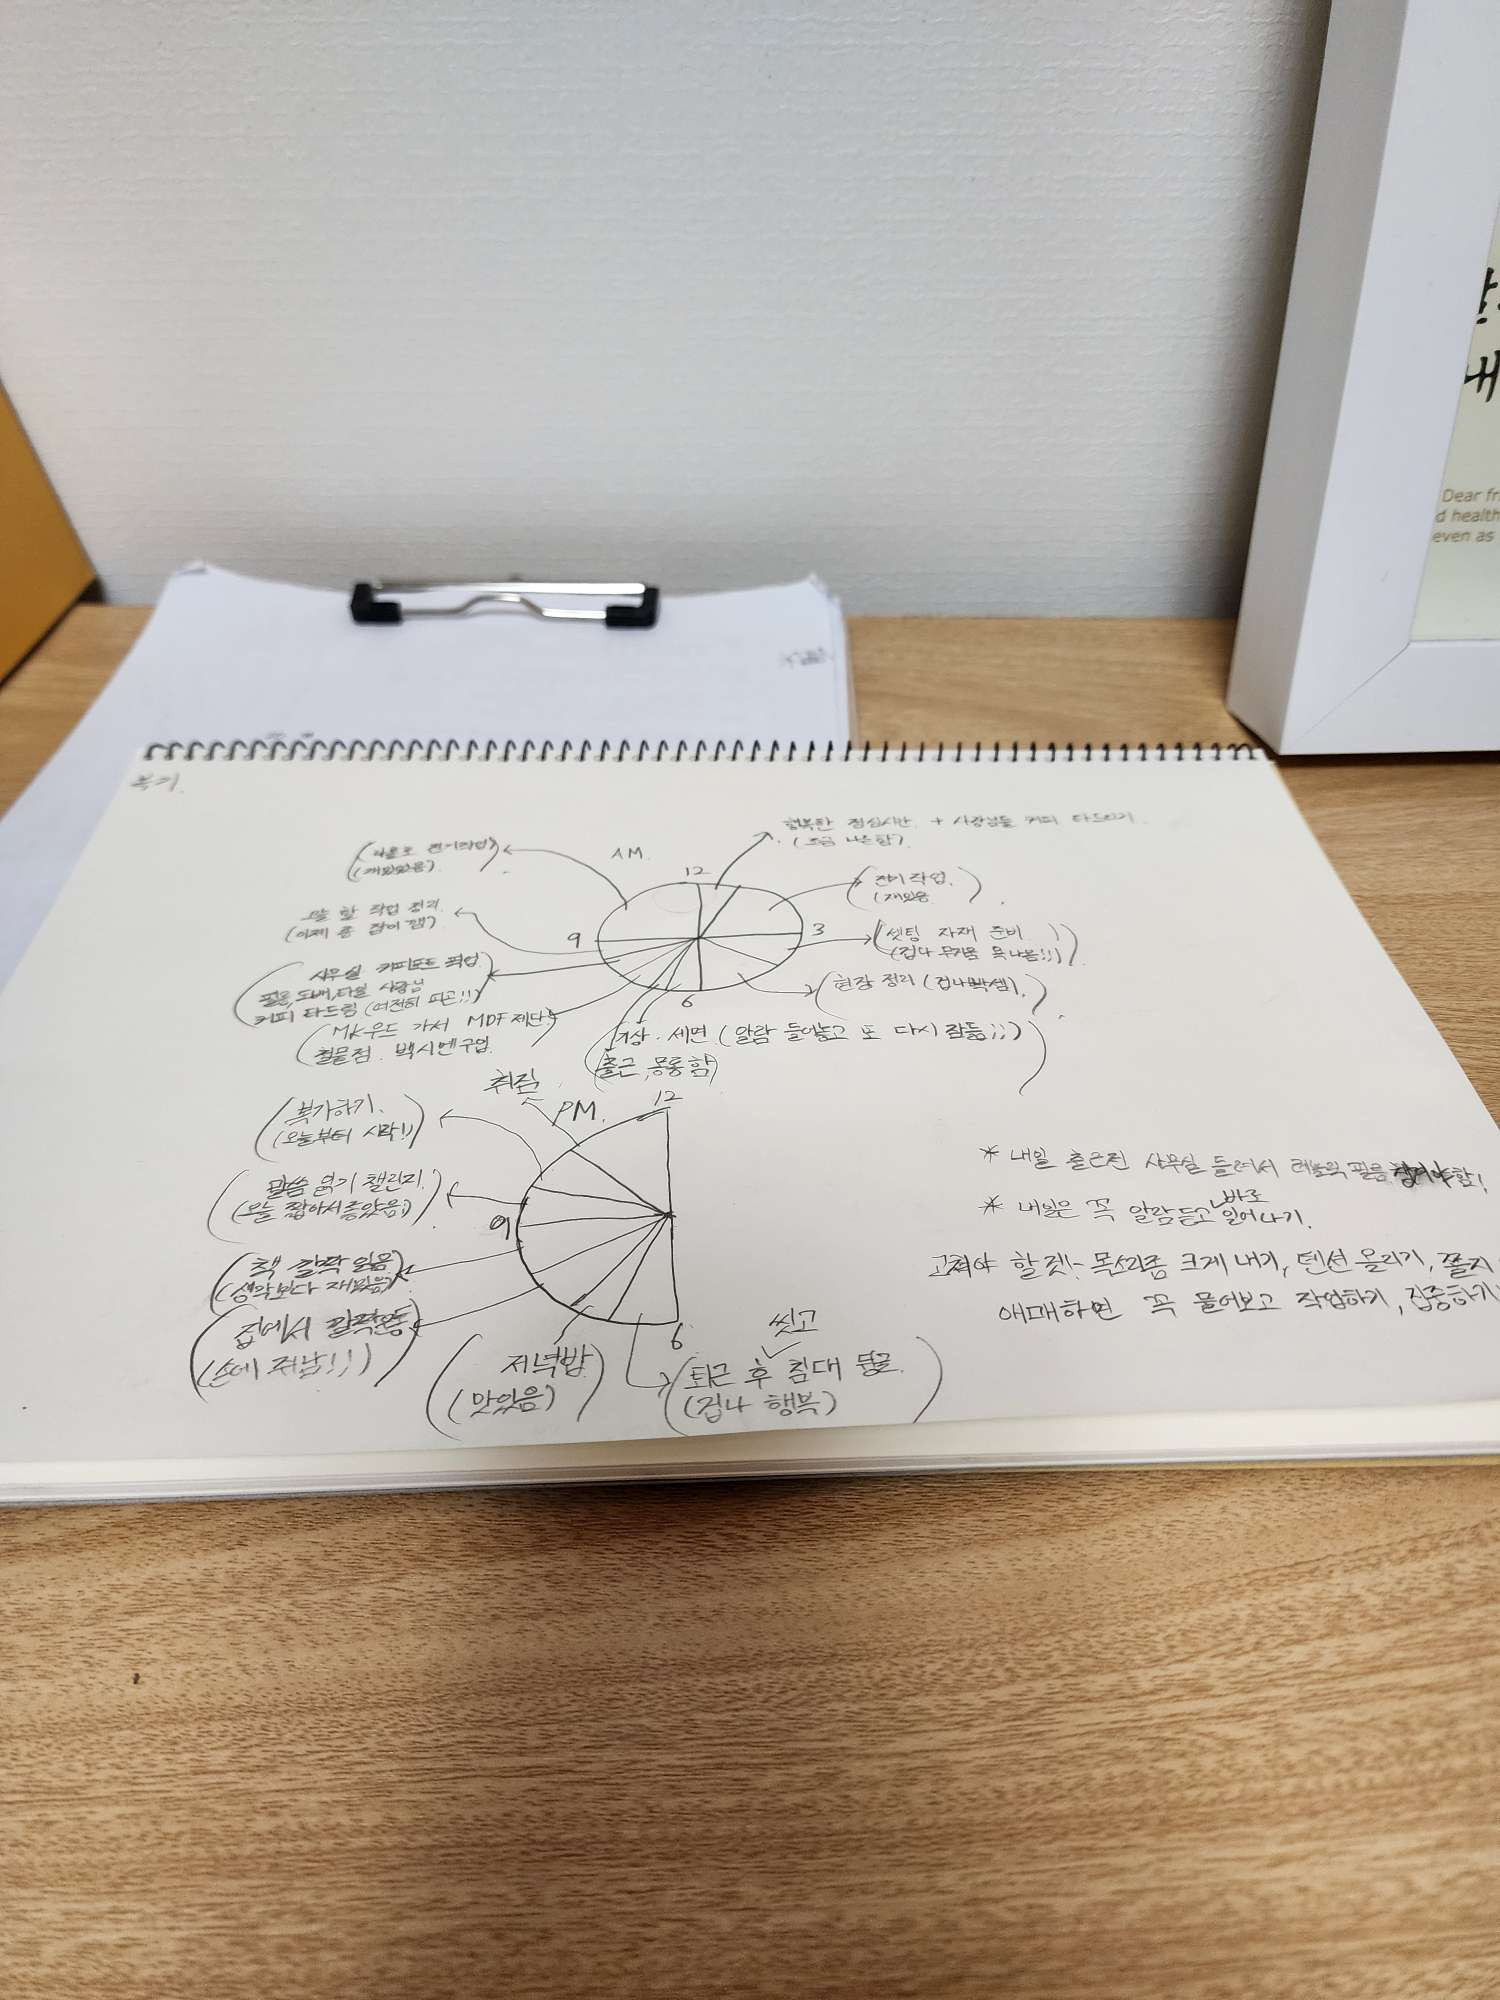 복기.
행복한 점심시간. + 사장님들 커피 타드리기.
(조금 나른함).
AM.
(재밌었음).
12
전기작업.
(재밌음
오늘 할 작업 정리.
(이제 좀 잠이 깸)
9
3
셋팅 자재 준비.
(겁나 무거움
사무실 커피포트 픽업.
필름, 도배, 타일 사장님
커피 타드림 (여전히 피곤!!)
6
현장 정리 (겁나빡셈).
MK우드 가서 MDF 제단.
철물점.
기상. 세면 (알람 들어놓고 또 다시 잠듦;;)
출근, 몽롱함)
취침.
PM.
12
복기하기.
(오늘부터 시작!)
말씀 읽기 챌린지.
(오늘 짧아서 좋았음;)
9
책 깔짝 읽음
(생각보다 재밌음)
집에서 깔짝운동
(손에 쥐남!!)
저녁밥
(맛있음)
6
씻고
퇴근 후 침대 뒹굴.
(겁나 행복)
* 내일 출근전 사무실 들려서 필름 챙겨야함!
바로
* 내일은 꼭 알람듣고 일어나기.
고쳐야 할 것!- 목소리좀 크게 내기, 텐션 올리기, 쫄지
애매하면 꼭 물어보고 작업하기, 집중하기
Dear fr
d health
even as